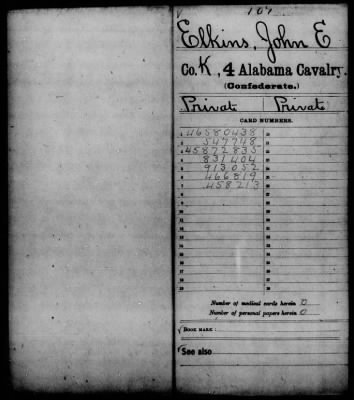 107
Elkins, John E
Co. K, 4 Alabama Cavalry.
(Confederate.)
Private Private
CARD NUMBERS.
1 46580438 20
2 547748 21
3 45872835 22
4 831404 23
5 913052 24
6 466819 25
7 458213 26
8 27
9 28
10 29
11 30
12 31
13 32
14 33
15 34
16 35
17 36
18 37
19 38
Number of medical cards herein 0
Number of personal papers herein 0
BOOK MARK:
See also